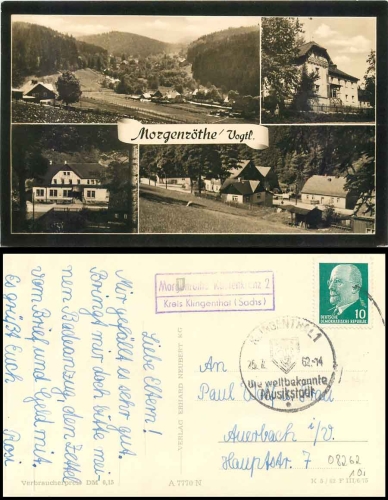 Morgenröthe/Vogtl.
Liebe Eltern!
Mir gefällt es sehr gut.
Bringt mir doch bitte mei-
nen Badeanzug, den Zettel
vom Brief und Geld mit.
Es grüßt Euch
Rosi
Verbraucherpreis DM 0,15
A 7710 N
VERLAG ERHARD NEUBERT KG
2
Kreis Klingenthal (Sachs)
KLINGENTHAL 1
62-14
Die weltbekannte
Musikstadt
10
DEUTSCHE
DEMOKRATISCHE REPUBLIK
An
Paul
Auerbach i/V.
Hauptstr. 7
08262